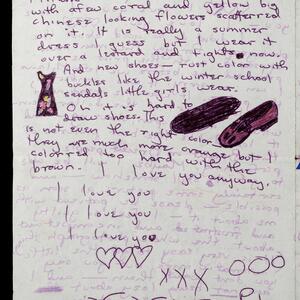 with a few coral and yellow big
chinese looking flowers scatterred
on it. It is really a summer
dress I guess but I wear it
over a leotard and tights now.
And new shoes — rust color with
buckles like the winter school
sandals little girls wear.
Oh it is hard to
draw shoes. This
is not even the right color
they are much more orange but I
colorred too hard with the
brown. I love you anyway.
I love you
I love you
I love you
XXX OOO